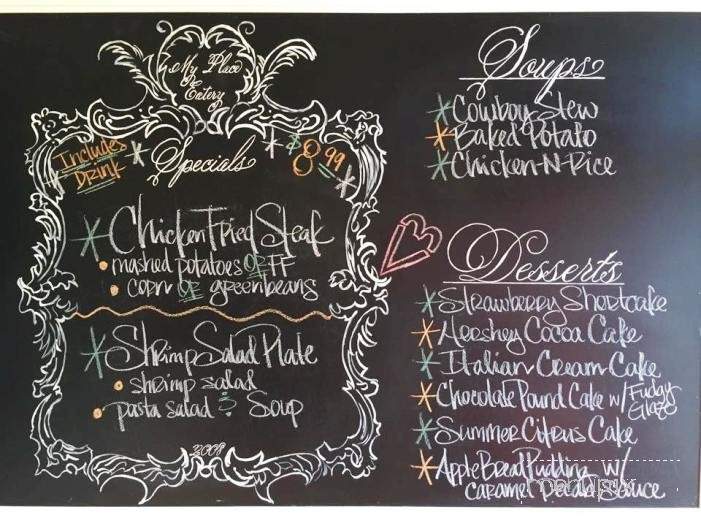 My Place
Eatery
Includes
Drink
Specials
$8.99
Chicken Fried Steak
mashed potatoes or FF
corn or greenbeans
Shrimp Salad Plate
shrimp salad
pasta salad & Soup
2009
Soups
Cowboy Stew
Baked Potato
Chicken-N-Rice
Desserts
Strawberry Shortcake
Hershey Cocoa Cake
Italian Cream Cake
Chocolate Pound Cake w/ Fudgy
Glaze
Summer Citrus Cake
Apple Bread Pudding w/
Caramel Pecan Sauce